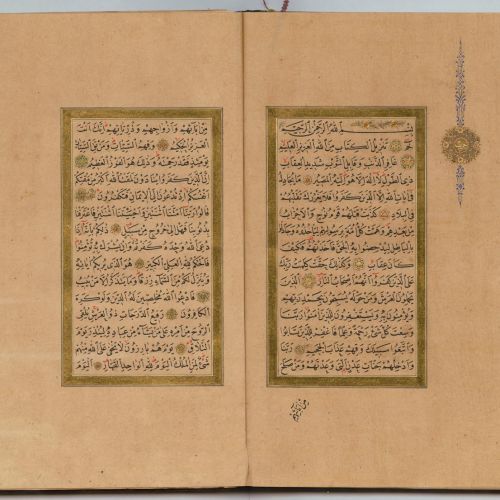 بسم الله الرحمن الرحيم
حم تنزيل الكتاب من الله العزيز العليم
غافر الذنب وقابل التوب شديد العقاب
ذي الطول لا اله الا هو اليه المصير ما يجادل
في آيات الله الا الذين كفروا فلا يغررك تقلبهم
في البلاد كذبت قبلهم قوم نوح والاحزاب
من بعدهم وهمت كل امة برسولهم ليأخذوه وجادلوا
بالباطل ليدحضوا به الحق فاخذتهم فكيف
كان عقاب وكذلك حقت كلمت ربك
على الذين كفروا انهم اصحاب النار الذين
يحملون العرش ومن حوله يسبحون بحمد ربهم
ويؤمنون به ويستغفرون للذين آمنوا ربنا
وسعت كل شيء رحمة وعلما فاغفر للذين تابوا
واتبعوا سبيلك وقهم عذاب الجحيم ربنا
وادخلهم جنات عدن التي وعدتهم ومن صلح
من آبائهم
من آبائهم وازواجهم وذرياتهم انك انت
العزيز الحكيم وقهم السيئات ومن تق السيئات
يومئذ فقد رحمته وذلك هو الفوز العظيم
ان الذين كفروا ينادون لمقت الله اكبر من مقتكم
انفسكم اذ تدعون الى الايمان فتكفرون
قالوا ربنا امتنا اثنتين واحييتنا اثنتين فاعترفنا
بذنوبنا فهل الى خروج من سبيل ذلكم بانه اذا
دعي الله وحده كفرتم وان يشرك به تؤمنوا
فالحكم لله العلي الكبير هو الذي يريكم آياته
وينزل لكم من السماء رزقا وما يتذكر الا من ينيب
فادعوا الله مخلصين له الدين ولو كره
الكافرون رفيع الدرجات ذو العرش يلقي
الروح من امره على من يشاء من عباده لينذر يوم
التلاق يوم هم بارزون لا يخفى على الله منهم
شيء لمن الملك اليوم لله الواحد القهار اليوم